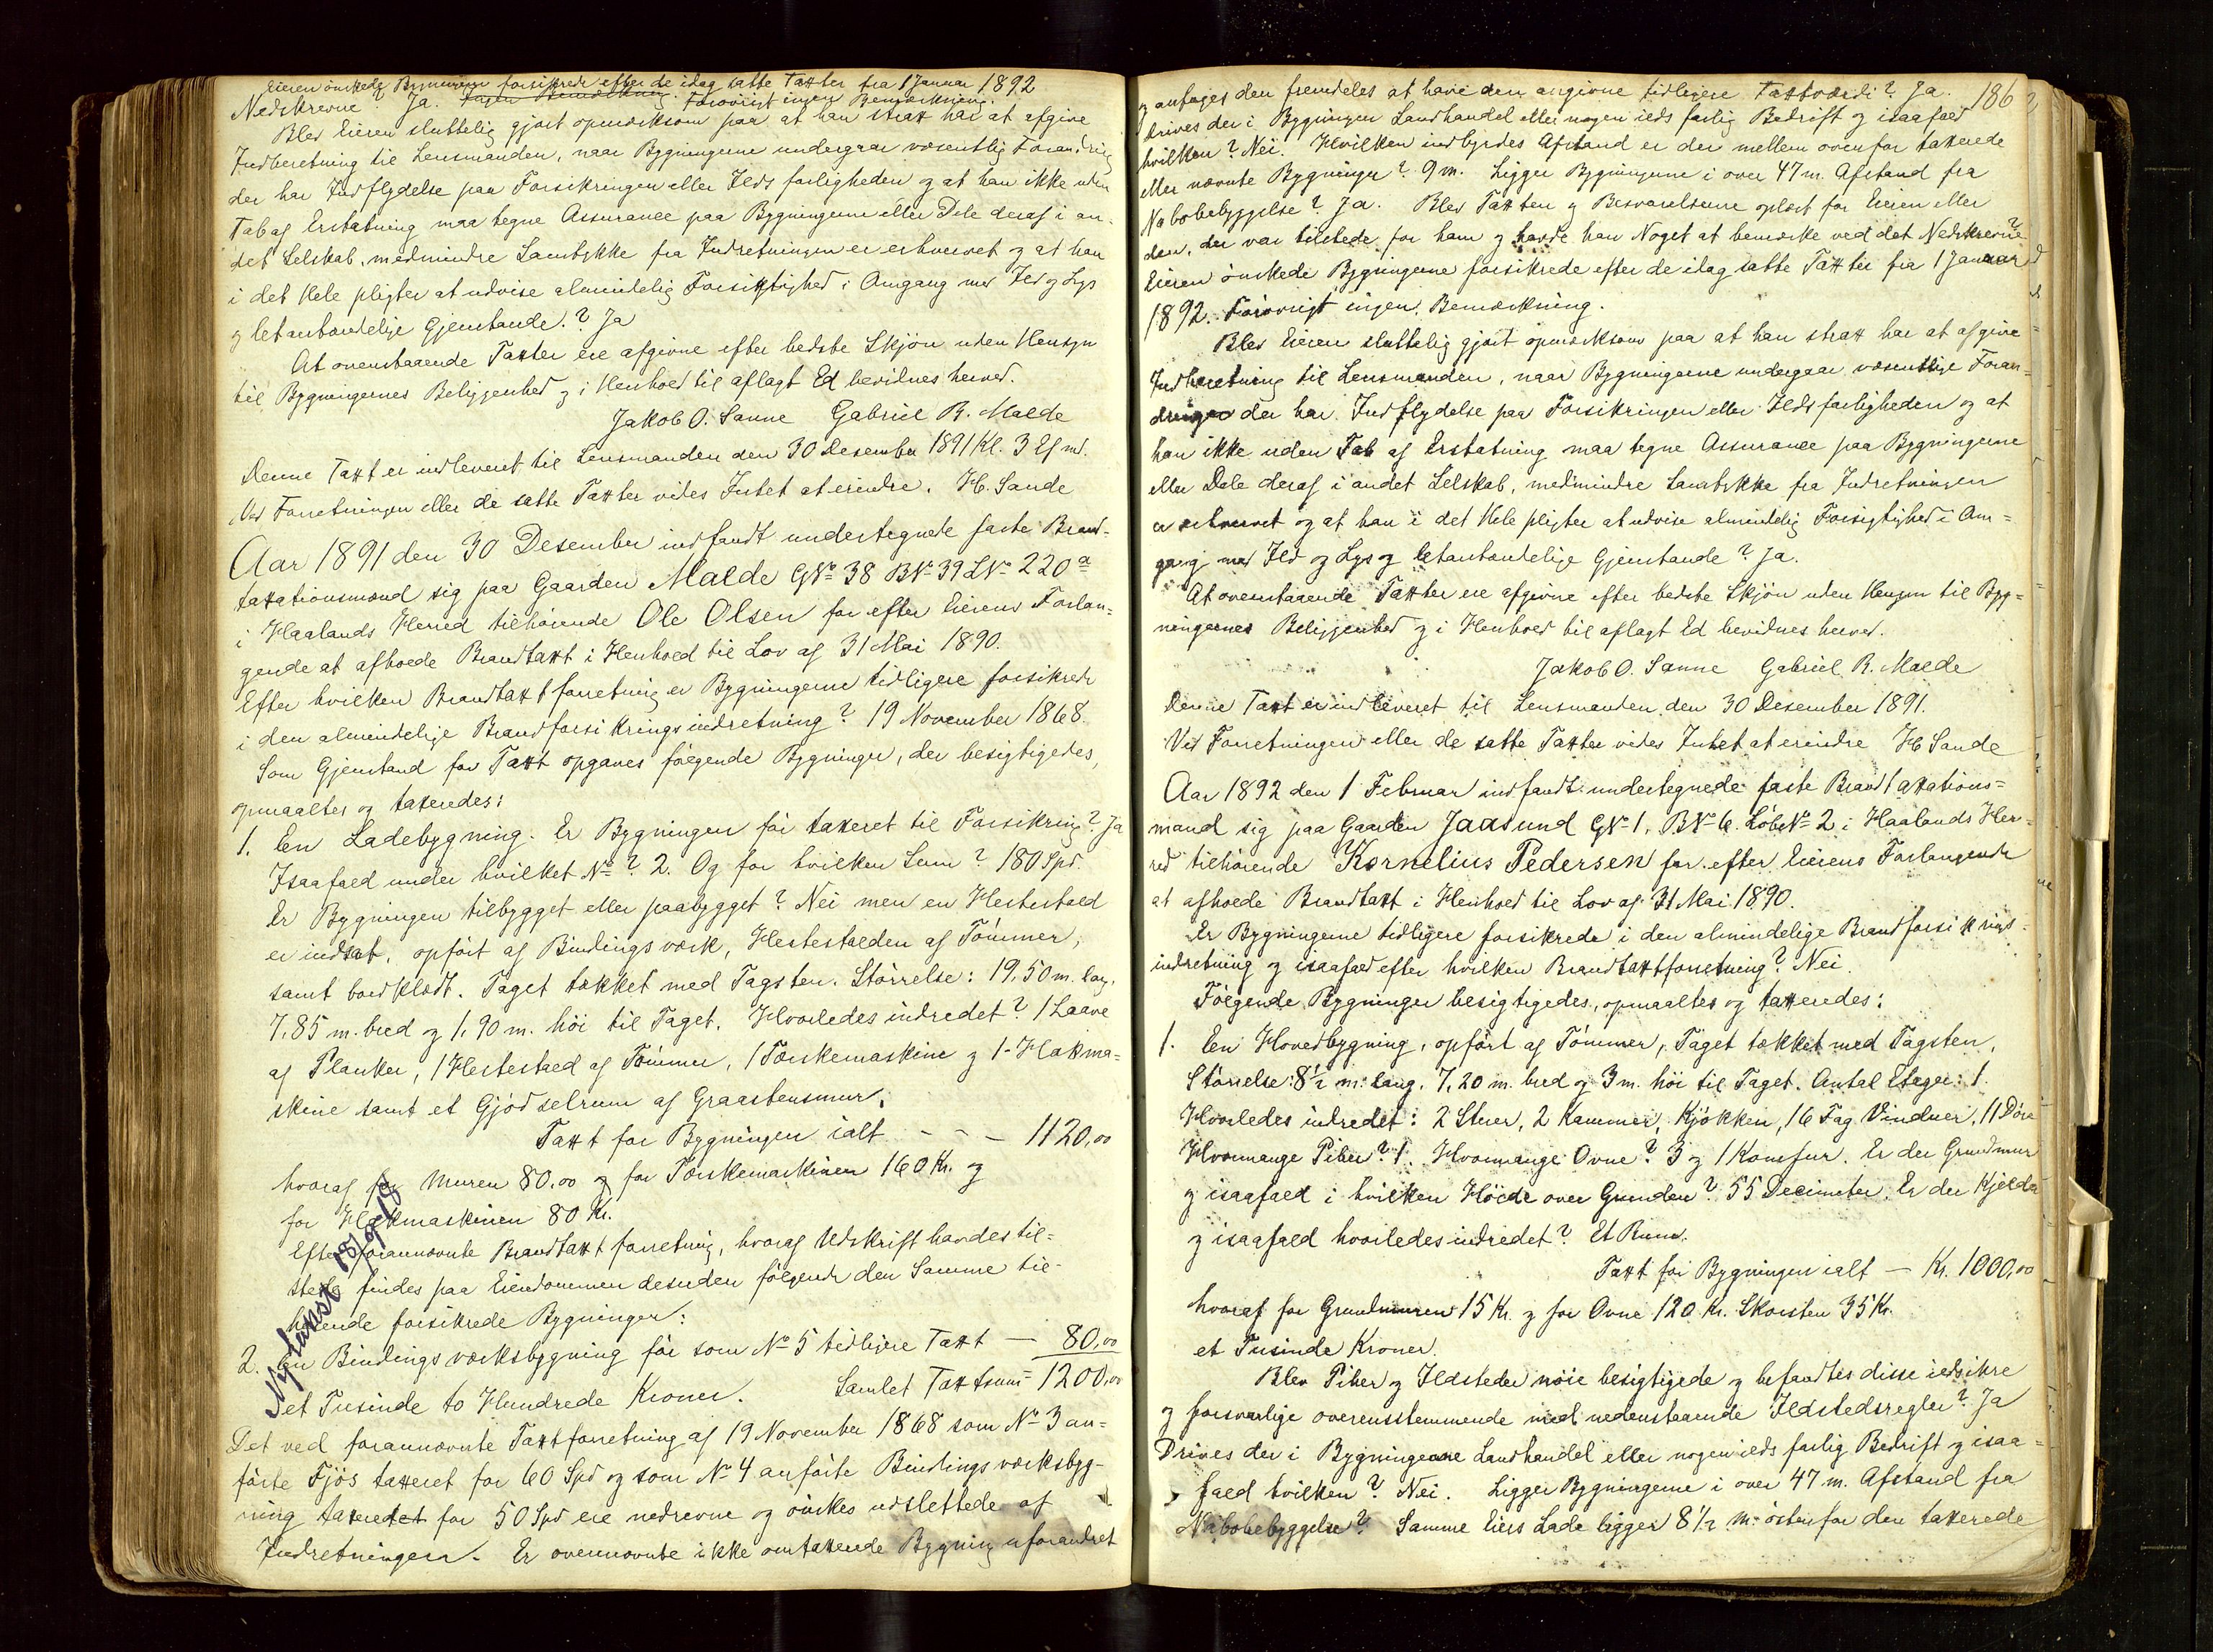 Eieren önskede Bygningen forsikrede efter de idag satte Taxter fra 1 Januar 1892
Nedskrevne? Ja. Ingen Bemærkning. Forövrigt ingen Bemærkning.
Blev Eieren sluttelig gjort opmærksom paa at han strax har at afgive
Indberetning til Lensmanden, naar Bygningerne undergaar væsentlig Forandring
der har Indflydelse paa Forsikringen eller Ildsfarligheden og at han ikke uden
Tab af Erstatning maa tegne Assurance paa Bygningerne eller Dele deraf i an-
det Selskab, medmindre Samtykke fra Indretningen er erhvervet og at han
i det Hele pligter at udvise almindelig Forsigtighed i Omgang med Ild og Lys
og letantændelige Gjenstande.? Ja
At ovenstaaende Taxter ere afgivne efter bedste Skjön uden Hensyn
til Bygningernes Beliggenhed og i Henhold til aflagt Ed bevidnes herved.
Jakob O. Sanne Gabriel R. Malde
Denne Taxt er indleveret til Lensmanden den 30 Desember 1891 Kl. 3 Efmd.
Ved Forretningen eller de satte Taxter vides Intet at erindre. H. Sande
Aar 1891 den 30 Desember indfandt undertegnede faste Brand-
taxationsmænd sig paa Gaarden Malde GNo 38 BNo 39 LNo 220a
i Haalands Herred tilhörende Ole Olsen for efter Eierens Forlan-
gende at afholde Brandtaxt i Henhold til Lov af 31 Mai 1890.
Efter hvilken Brandtaxtforretning er Bygningerne tidligere forsikrede
i den almindelige Brandforsikringsindretning? 19 November 1868.
Som Gjenstand for Taxt opgaves fölgende Bygninger, der besigtigedes,
opmaaltes og taxeredes:
1. En Ladebygning. Er Bygningen för taxeret til Forsikring? Ja
Isaafald under hvilket No? 2. Og for hvilken Sum? 180 Spd.
Er Bygningen tilbygget eller paabygget? Nei men en Hestestald
er indsat, opfört af Bindingsværk, Hestestalden af Tömmer,
samt bordklædt. Taget tækket med Tagsten. Störrelse: 19,50 m. lang,
7,85 m. bred og 1,90 m. höi til Taget. Hvorledes indredet? 1 Laave
af Planker, 1 Hestestald af Tömmer, 1 Tærskemaskine og 1 Hakma=
skine samt et Gjödselrum af Graastensmur.
Taxt for Bygningen ialt - - - 1120,00
hvoraf for Muren 80.00 og for Tærskemaskinen 160 Kr. og
for Hakmaskinen 80 Kr.
Efter forannævnte Brandtaxtforretning, hvoraf Udskrift havdes til=
stede findes paa Eiendommen desuden fölgende den Samme til-
hörende forsikrede Bygninger:
2. En Bindingsværksbygning för som No 5 tidligere Taxt — 80,00
Samlet Taxtsum = 1200,00
et Tusinde to Hundrede Kroner.
Ny takst 18/9 18
Det ved forannævnte Taxtforretning af 19 November 1868 som No 3 an=
förte Fjös taxeret for 60 Spd og som No 4 anförte Bindingsværksbyg-
ning taxeret for 50 Spd ere nedrevne og önskes udslettede af
Indretningen. Er ovennævnte ikke omtaxerede Bygning uforandret
186
og antages den fremdeles at have den angivne tidligere Taxtværdi? Ja.
Drives der i Bygningen Landhandel eller nogen ildsfarlig Bedrift og isaafald
hvilken? Nei. Hvilken indbyrdes Afstand er der mellem ovenfor taxerede
eller nævnte Bygninger? 9 m. Ligger Bygningerne i over 47 m. Afstand fra
Nabobebyggelse? Ja. Blev Taxten og Besvarelserne oplæst for Eieren eller
den, der var tilstede for ham og havde han Noget at bemærke ved det Nedskrevne?
Eieren önskede Bygningerne forsikrede efter de idag satte Taxter fra 1 Januar
1892. Forövrigt ingen Bemærkning.
Blev Eieren sluttelig gjort opmærksom paa at han strax har at afgive
Indberetning til Lensmanden, naar Bygningerne undergaar væsentlige Foran=
dringer der har Indflydelse paa Forsikringen eller Ildsfarligheden og at
han ikke uden Tab af Erstatning maa tegne Assurance paa Bygningerne
eller Dele deraf i andet Selskab, medmindre Samtykke fra Indretningen
er erhvervet og at han i det Hele pligter at udvise almindelig Forsigtighed i Om=
gang med Ild og Lys og letantændelige Gjenstande? Ja.
At ovenstaaende Taxter ere afgivne efter bedste Skjön uden Hensyn til Byg=
ningernes Beliggenhed og i Henhold til aflagt Ed bevidnes herved.
Jakob O. Sanne Gabriel R. Malde
Denne Taxt er indleveret til Lensmanden den 30 Desember 1891.
Ved Forretningen eller de satte Taxter vides Intet at erindre H Sande
Aar 1892 den 1 Februar indfandt undertegnede faste Brandtaxations=
mænd sig paa Gaarden Jaasund GNo 1, BNo 6. LöbNo 2 i Haalands Her=
red tilhörende Kornelius Pedersen for efter Eierens Forlangende
at afholde Brandtaxt i Henhold til Lov af 31 Mai 1890.
Er Bygningerne tidligere forsikrede i den almindelige Brandforsikrings-
indretning og isaafald efter hvilken Brandtaxtforretning? Nei.
Fölgende Bygninger besigtigedes, opmaaltes og taxeredes:
1. En Hovedbygning, opfört af Tömmer, Taget tækket med Tagsten.
Störrelse: 8 1/2 m. lang, 7,20 m. bred og 3 m. höi til Taget. Antal Etager: 1.
Hvorledes indredet: 2 Stuer, 2 Kammer, Kjökken, 16 Fag Vinduer, 11 Döre
Hvormange Piber? 1. Hvormange Ovne? 3 og 1 Komfur. Er der Grundmur
og isaafald i hvilken Höide over Grunden? 55 Decimeter. Er der Kjelder
og isaafald hvorledes indredet? Et Rum.
Taxt for Bygningen ialt — Kr. 1000,00
hvoraf for Grundmuren 15 Kr. og for Ovne 120 Kr. Skorsten 35 Kr.
et Tusinde Kroner.
Blev Piber og Ildsteder nöie besigtigede og befandtes disse ildsikre
og forsvarlige overensstemmende med nedenstaaende Ildstedsregler? Ja
Drives der i Bygningerne Landhandel eller nogen ildsfarlig Bedrift og isaa=
fald hvilken? Nei. Ligger Bygningerne i over 47 m. Afstand fra
Nabobebyggelse? Samme Eiers Lade ligger 8 1/2 m. östenfor den taxerede